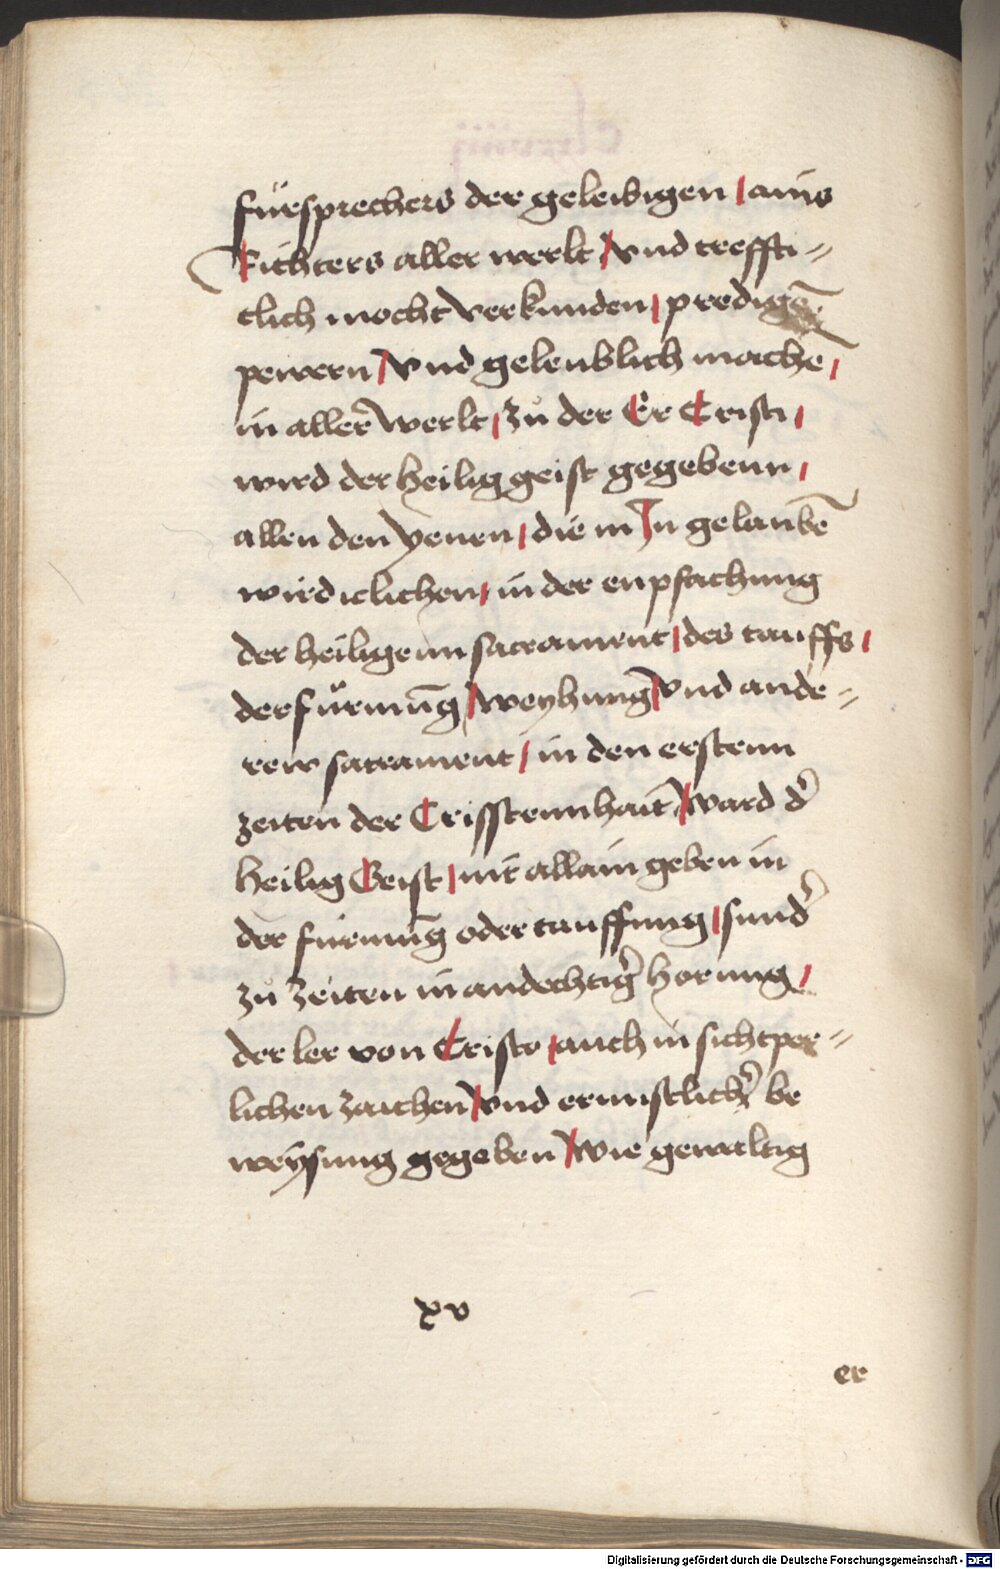 fürsprechers der geleibigen / ains
Richters aller werlt / vnd treffti⸗
clich mocht verkunden / predigē
pewern / vnd geleublich mache /
in aller̃ werlt / zů der Er Cristi /
wird der heilig geist gegebenn /
allen den yenen / die in Jn gelaubē
wirdiclichen / in der enpfachung
der heiligenn sacrament / des tauffs /
der fürmūg / weyhung / vnd ande⸗
rew sacrament / in den erstenn
zeiten der Crisstennhait / ward d̉
heilig Geist / nit allain geben in
der furmūg oder tauffung / sund̉
zů zeiten in andechtig̉ horung /
der ler von Cristo / auch in sichtper⸗
lichen zaichen / vnd ernnstlich̉ be
weysung gegeben / wie gewaltig
xv
er
Digitalisierung gefördert durch die Deutsche Forschungsgemeinschaft - DFG